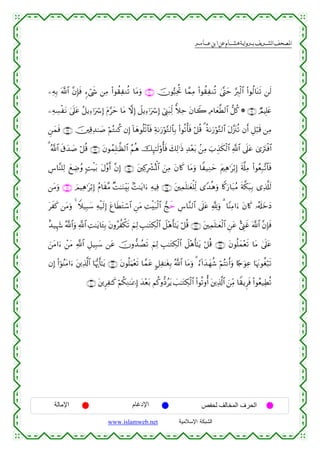 المصحف الشريف برواية هشام عن ابن عامر
لَن تَنَالُوا۟ ٱلْبِرَّ حَتَّىٰ تُنفِقُوا۟ مِمَّا تُحِبُّونَ ۝ وَمَا تُنفِقُوا۟ مِن شَىْءٍ فَإِنَّ ٱللَّهَ بِهِۦ
عَلِيمٌ ۝ ۞ كُلُّ ٱلطَّعَامِ كَانَ حِلًّا لِّبَنِىٓ إِسْرَٰٓءِيلَ إِلَّا مَا حَرَّمَ إِسْرَٰٓءِيلُ عَلَىٰ نَفْسِهِۦ
مِن قَبْلِ أَن تُنَزَّلَ ٱلتَّوْرَىٰةُ ۗ قُلْ فَأْتُوا۟ بِٱلتَّوْرَىٰةِ فَٱتْلُوهَآ إِن كُنتُمْ صَٰدِقِينَ ۝ فَمَنِ
ٱفْتَرَىٰ عَلَى ٱللَّهِ ٱلْكَذِبَ مِنۢ بَعْدِ ذَٰلِكَ فَأُو۟لَٰٓئِكَ هُمُ ٱلظَّٰلِمُونَ ۝ قُلْ صَدَقَ ٱللَّهُ ۗ
فَٱتَّبِعُوا۟ مِلَّةَ إِبْرَٰهِيمَ حَنِيفًا وَمَا كَانَ مِنَ ٱلْمُشْرِكِينَ ۝ إِنَّ أَوَّلَ بَيْتٍ وُضِعَ لِلنَّاسِ
لَلَّذِى بِبَكَّةَ مُبَارَكًا وَهُدًى لِّلْعَٰلَمِينَ ۝ فِيهِ ءَايَٰتٌۢ بَيِّنَٰتٌ مَّقَامُ إِبْرَٰهِيمَ ۖ وَمَن
دَخَلَهُۥ كَانَ ءَامِنًا ۗ وَلِلَّهِ عَلَى ٱلنَّاسِ حَجُّ ٱلْبَيْتِ مَنِ ٱسْتَطَاعَ إِلَيْهِ سَبِيلًا ۚ وَمَن كَفَرَ
فَإِنَّ ٱللَّهَ غَنِىٌّ عَنِ ٱلْعَٰلَمِينَ ۝ قُلْ يَٰٓأَهْلَ ٱلْكِتَٰبِ لِمَ تَكْفُرُونَ بِـَٔايَٰتِ ٱللَّهِ وَٱللَّهُ شَهِيدٌ
عَلَىٰ مَا تَعْمَلُونَ ۝ قُلْ يَٰٓأَهْلَ ٱلْكِتَٰبِ لِمَ تَصُدُّونَ عَن سَبِيلِ ٱللَّهِ مَنْ ءَامَنَ
تَبْغُونَهَا عِوَجًا وَأَنتُمْ شُهَدَآءُ ۗ وَمَا ٱللَّهُ بِغَٰفِلٍ عَمَّا تَعْمَلُونَ ۝ يَٰٓأَيُّهَا ٱلَّذِينَ ءَامَنُوٓا۟ إِن
تُطِيعُوا۟ فَرِيقًا مِّنَ ٱلَّذِينَ أُوتُوا۟ ٱلْكِتَٰبَ يَرُدُّوكُم بَعْدَ إِيمَٰنِكُمْ كَٰفِرِينَ ۝
الحرف المخالف لحفص
الإدغام
الإمالة
الشبكة الإسلامية www.islamweb.net